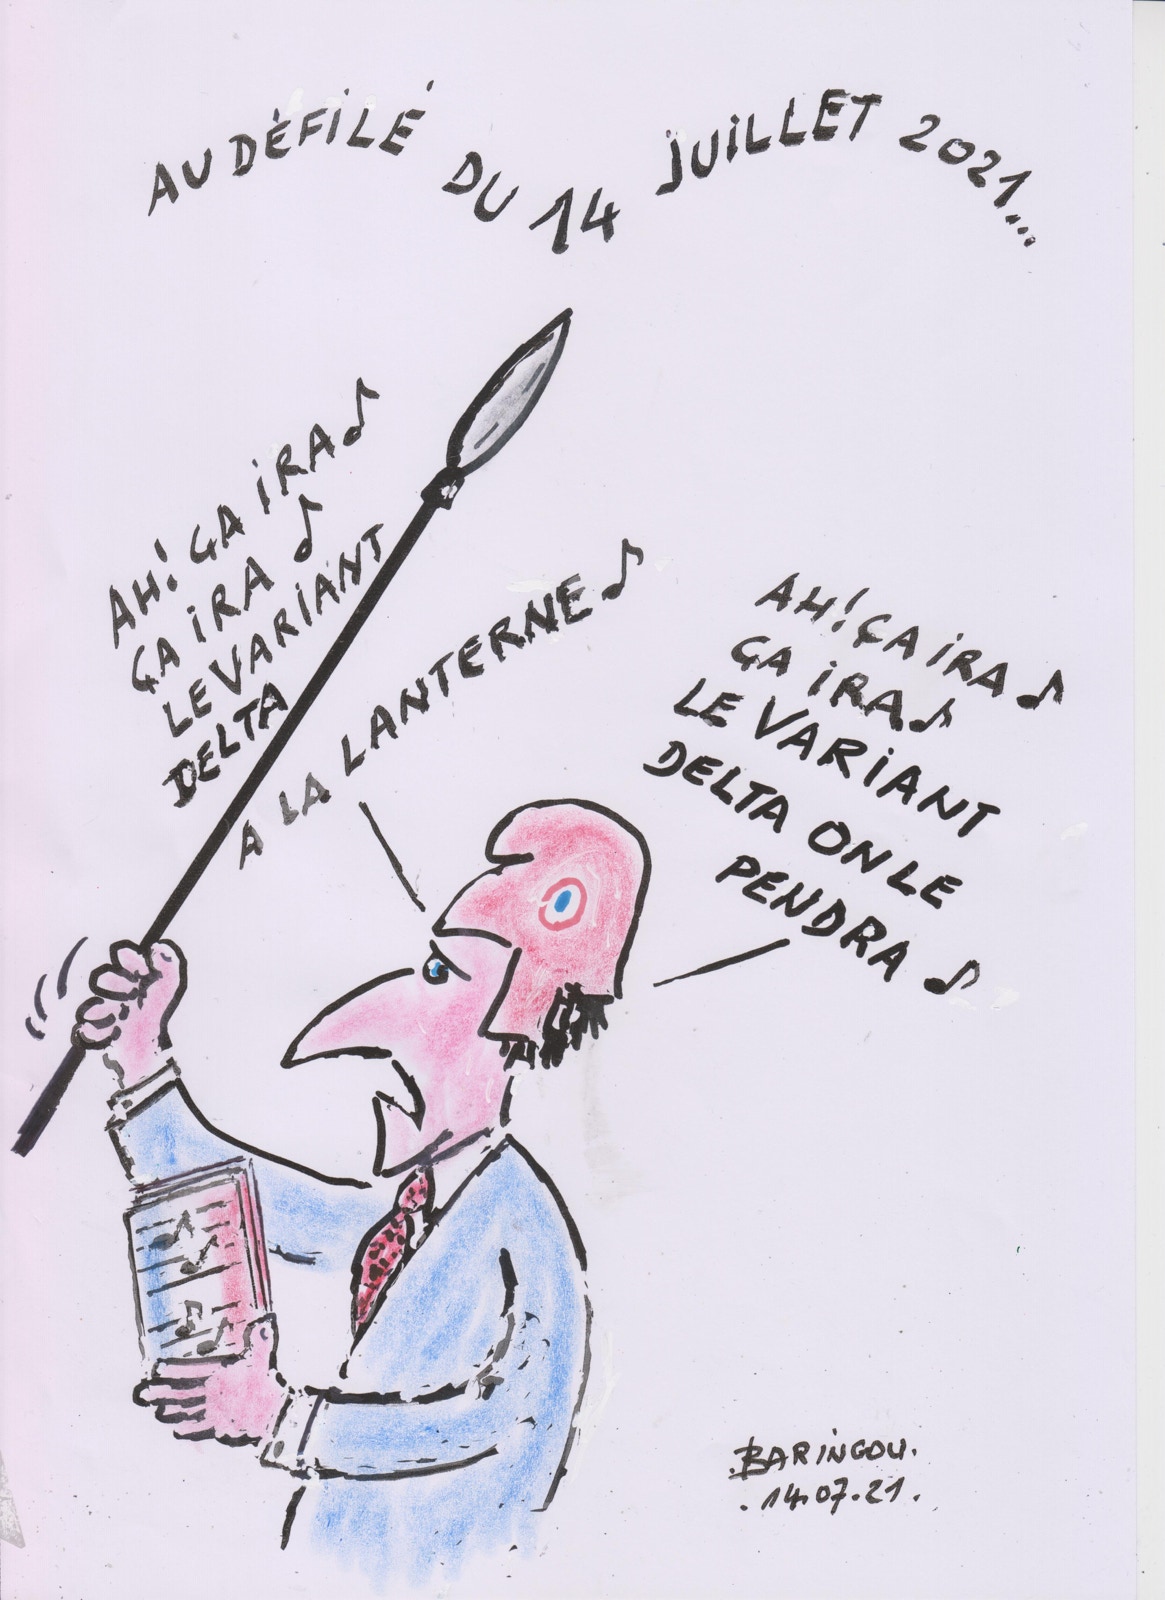 AU DÉFILÉ DU 14 JUILLET 2021...
AH! ÇA iRA
ÇA iRA
LE VARIANT
DELTA
A LA LANTERNE
AH! ÇA iRA
ÇA iRA
LE VARIANT
DELTA ON LE
PENDRA
BARINGOU.
.14.07.21.